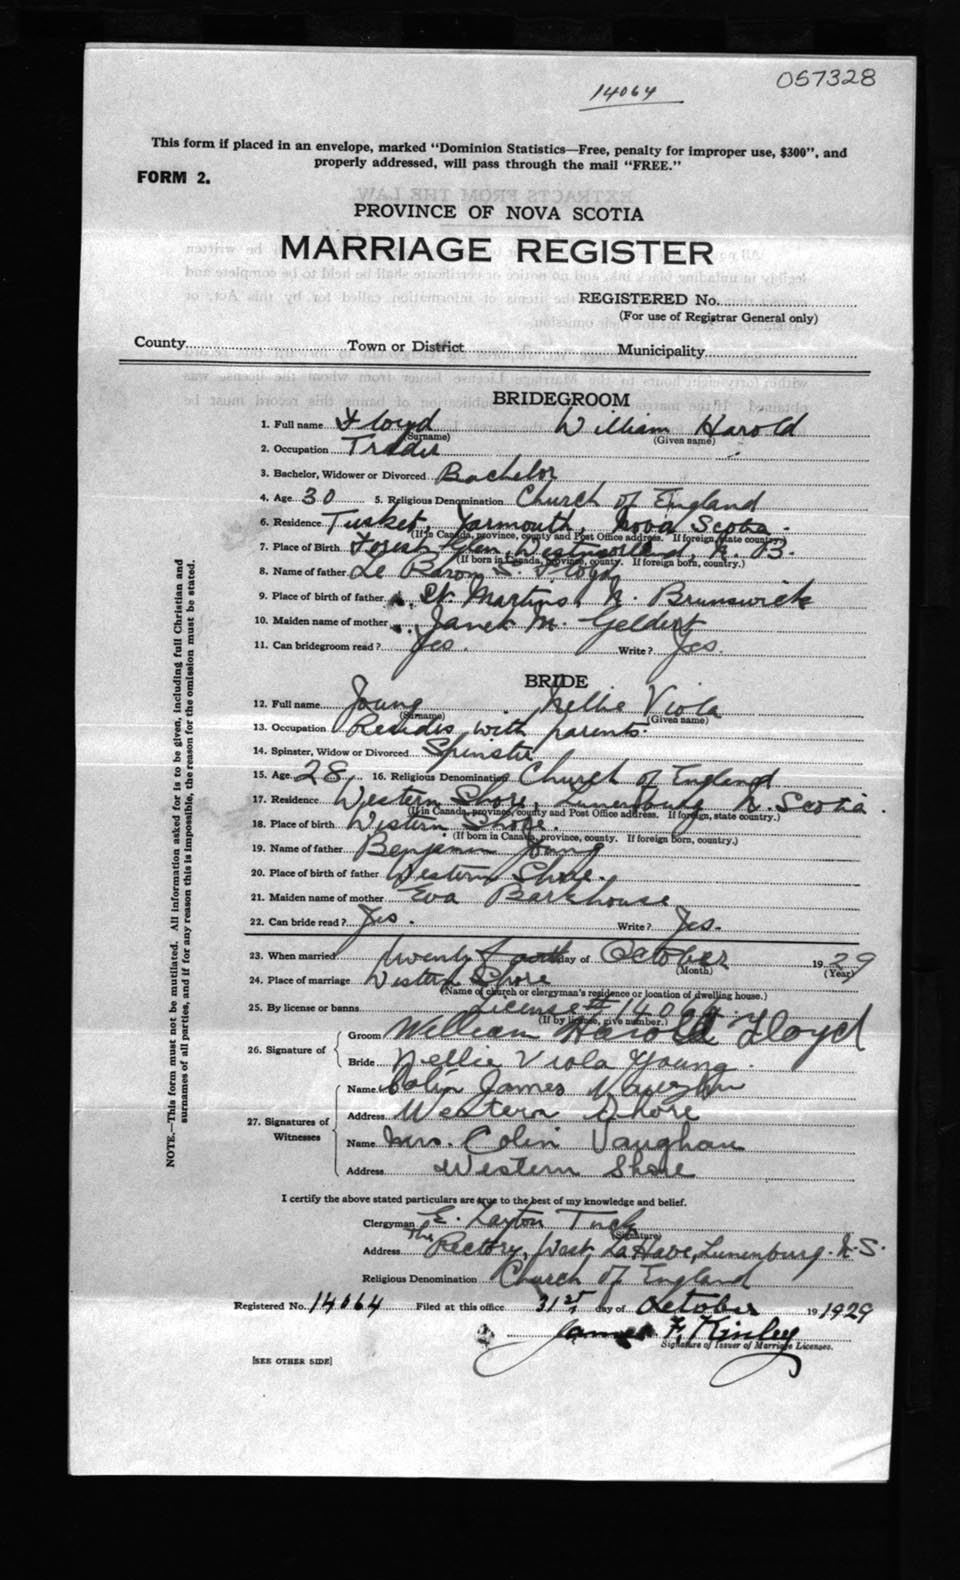 057328
14064
This form if placed in an envelope, marked "Dominion Statistics—Free, penalty for improper use, $300", and
properly addressed, will pass through the mail "FREE."
FORM 2.
PROVINCE OF NOVA SCOTIA
MARRIAGE REGISTER
REGISTERED No.
(For use of Registrar General only)
County Town or District Municipality
BRIDEGROOM
1. Full name Floyd William Harold
(Surname) (Given name)
2. Occupation Trader
3. Bachelor, Widower or Divorced Bachelor
4. Age 30 5. Religious Denomination Church of England
6. Residence Tusket, Yarmouth, Nova Scotia.
(If in Canada, province, county and Post Office address. If foreign, state country.)
7. Place of Birth Forest Glen, Westmorland, N. B.
(If born in Canada, province, county. If foreign born, country.)
8. Name of father Le Baron S. Floyd
9. Place of birth of father St. Martins, N. Brunswick
10. Maiden name of mother Janet M. Geldert
11. Can bridegroom read? Yes. Write? Yes.
BRIDE
12. Full name Young Nellie Viola
(Surname) (Given name)
13. Occupation Resides with parents.
14. Spinster, Widow or Divorced Spinster
15. Age 28 16. Religious Denomination Church of England
17. Residence Western Shore, Lunenburg N. Scotia.
(If in Canada, province, county and Post Office address. If foreign, state country.)
18. Place of birth Western Shore.
(If born in Canada, province, county. If foreign born, country.)
19. Name of father Benjamin Young
20. Place of birth of father Western Shore.
21. Maiden name of mother Eva Barkhouse
22. Can bride read? Yes. Write? Yes.
23. When married twenty fourth day of October 1929
(Month) (Year)
24. Place of marriage Western Shore
(Name of church or clergyman's residence or location of dwelling house.)
25. By license or banns License # 14064
(If by license, give number.)
26. Signature of
Groom William Harold Floyd
Bride Nellie Viola Young.
27. Signatures of Witnesses
Name Colin James Vaughan
Address Western Shore
Name Mrs. Colin Vaughan
Address Western Shore
I certify the above stated particulars are true to the best of my knowledge and belief.
Clergyman E. Layton Tuck
(Signature)
Address The Rectory, West LaHave, Lunenburg. N.S.
Religious Denomination Church of England
Registered No. 14064 Filed at this office 31st day of October 19 1929
James F. Kinley
Signature of Issuer of Marriage Licenses.
[SEE OTHER SIDE]
NOTE.—This form must not be mutilated. All information asked for is to be given, including full Christian and
surnames of all parties, and if for any reason this is impossible, the reason for the omission must be stated.